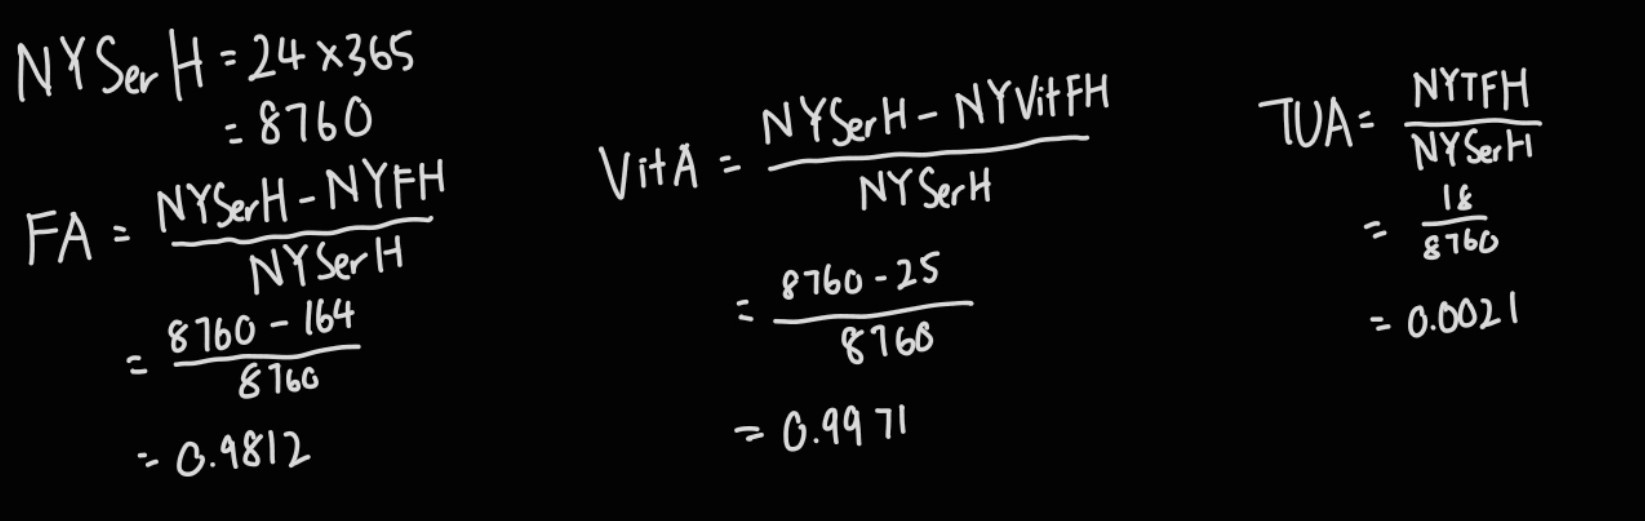 NYSerH = 24 × 365
= 8760
FA = NYSerH - NYFH / NYSerH
= 8760 - 164 / 8760
= 0.9812
VitA = NYSerH - NYVitFH / NYSerH
= 8760 - 25 / 8760
= 0.9971
TUA = NYTFH / NYSerH
= 18 / 8760
= 0.0021